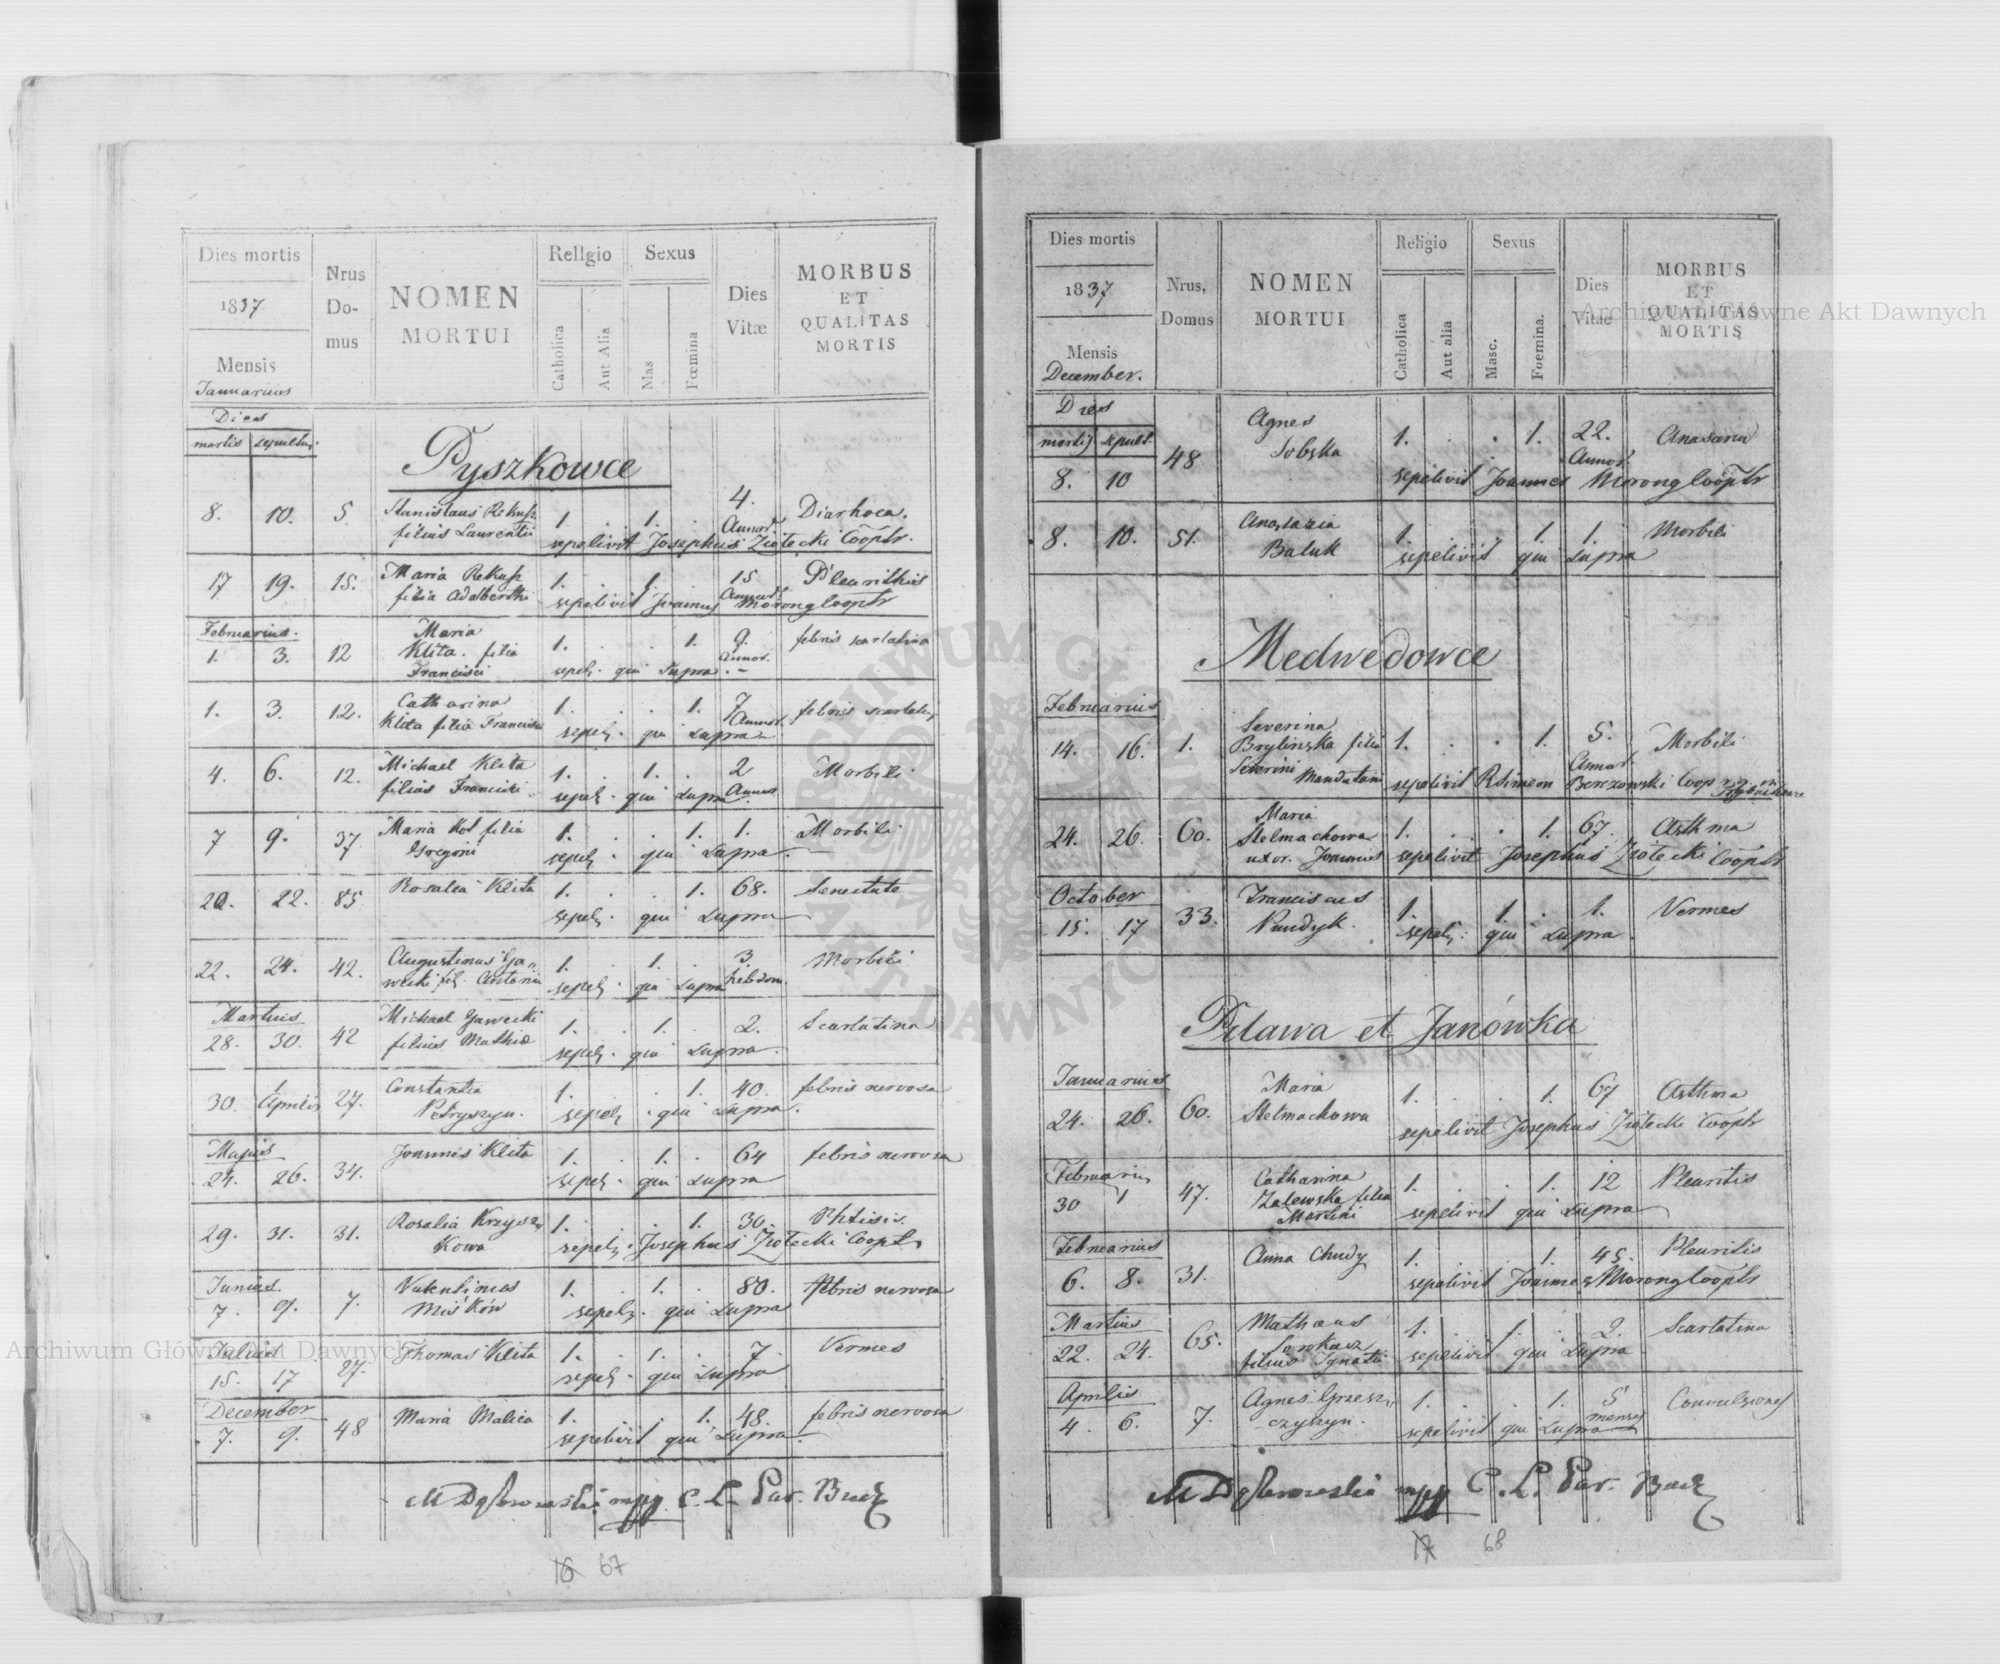 Dies mortis
1837.
Mensis
Januarius
Nrus
Do-
mus
NOMEN
MORTUI
Religio
Catholica
Aut Alia
Sexus
Mas
Fœmina
Dies
Vitæ
MORBUS
ET
QUALITAS
MORTIS
Dies
mortis sepultu.
Pyszkowce
8. 10. 5. Stanislaus 1. . 1. . 4. Diarhoea.
filius Laurentii Annor.
sepelivit Josephus Ziołecki Cooptr.
17 19. 15. Maria 1. . 1. 15 Pleurithis
filia Adalberthi Annor.
sepelivit Joannes Morong Cooptr
Februarius.
1. 3. 12 Maria 1. . . 1. 9. febris scarlatina
Klita. filia Annor.
Francisci sepel. qui supra.
1. 3. 12. Catharina 1. . . 1. 7 febris
Klita filia Francisci Annor.
sepel. qui supra
4. 6. 12. Michael Klita 1. . 1. . 2 Morbili
filius Francisci Annor
sepel. qui supra
7 9. 37. Maria Kot filia 1. . . 1. 1. Morbili
Gregorii sepel. qui supra.
20. 22. 85 Rosalia Klita 1. . . 1. 68. Senectute
sepel. qui supra
22. 24. 42. Augustinus Ga- 1. . 1. . 3. Morbili
wecki fil. Antonii hebdom.
sepel. qui supra
Martius
28. 30. 42 Michael Gawecki 1. . 1. . 2. Scarlatina
filius Mathiæ sepel. qui supra.
30. 1 Aprilis 27. Constantia 1. . . 1. 40. febris nervosa
Petryszyn. sepel. qui supra.
Majus
24. 26. 34. Joannes Klita 1. . 1. . 64 febris nervosa
sepel. qui supra
29. 31. 31. Rosalia 1. . . 1. 30. Phtisis.
Kowa sepel. Josephus Ziołecki Cooptr
Junius
7. 9. 7. Valentinus 1. . 1. . 80. febris nervosa
Miśków sepel. qui supra
Julius
15. 17 27. Thomas Klita 1. . 1. . 7. Vermes
sepel. qui supra
December
7. 9. 48 Maria Malica 1. . . 1. 48. febris nervosa
sepelivit qui supra.
M Dąbrowski mpp C. L. Par. Bucz
16 67
Dies mortis
1837
Mensis
December.
Nrus,
Domus
NOMEN
MORTUI
Religio
Catholica
Aut alia
Sexus
Masc.
Foemina.
Dies
Vitae
MORBUS
ET
QUALITAS
MORTIS
Dies
mortis sepult.
8. 10 48 Agnes 1. . . 1. 22. Anasarca
Sobska Annor.
sepelivit Joannes Morong Cooptr
8. 10. 51. Anastazia 1. . . 1. 1. Morbili
Baluk sepelivit qui supra
Medwedowce
Februarius
14. 16. 1. Severina 1. . . 1. 5. Morbili
Brylinska filia Annor.
Severini Mandatarii sepelivit Berezowski Coop
24. 26. 60. Maria 1. . . 1. 67. Asthma
Stelmachowa
uxor. Joannis sepelivit Josephus Ziołecki Cooptr
October
15. 17 33. Franciscus 1. . 1. . 1. Vermes
Pundyk. sepel. qui supra.
Pilawa et Janówka
Januarius
24. 26. 60. Maria 1. . . 1. 67 Asthma
Stelmachowa sepelivit Josephus Ziołecki Cooptr
Februarius
30 1 47. Catharina 1. . . 1. 12 Pleuritis
Zalewska filia
Martini sepelivit qui supra
Februarius
6. 8. 31. Anna Chudy 1. . . 1. 45. Pleuritis
sepelivit Joannes Morong Cooptr
Martius
22. 24. 65. Mathaus 1. . 1. . 2. Scarlatina
filius Ignatii sepelivit qui supra.
Aprilis
4. 6. 7. Agnes Grzesz- 1. . . 1. 5 Convulsiones
czyszyn. menses
sepelivit qui supra
M Dąbrowski mpp C. L. Par. Bucz
17 68
Archiwum Główne Akt Dawnych
Archiwum Główne Akt Dawnych
ARCHIWUM GŁÓWNE AKT DAWNYCH